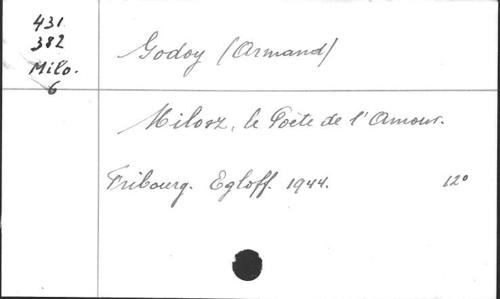 431
382
Milo.
6
Godoy (Armand)
Milosz, le Poète de l'Amour.
Fribourg. Egloff. 1944. 12°